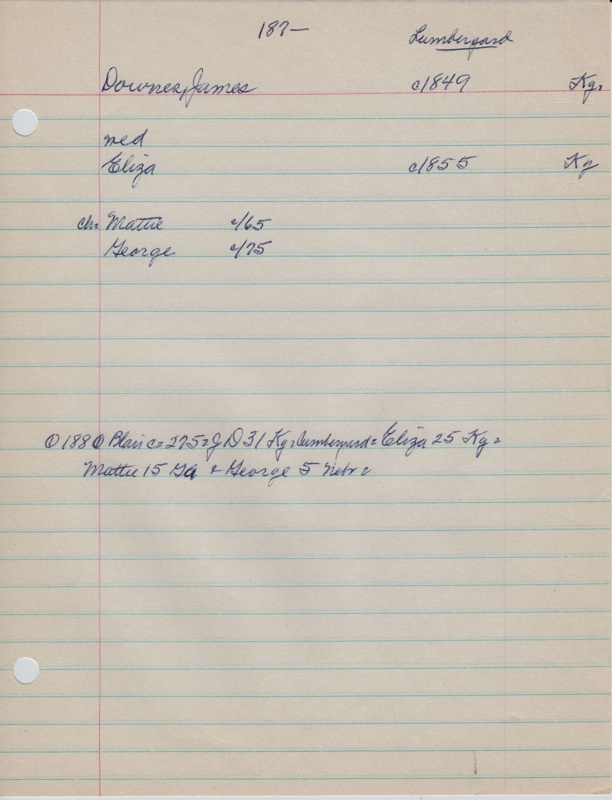 187-
Lumbergard
Downes, James c/1849 Ky.
med
Eliza c/1855 Ky
chn Mattie c/65
George c/75
① 1880 Blair c= 275= J D 31 Ky= Lumberyard= Eliza 25 Ky=
Mattie 15 Ga + George 5 Nebr=